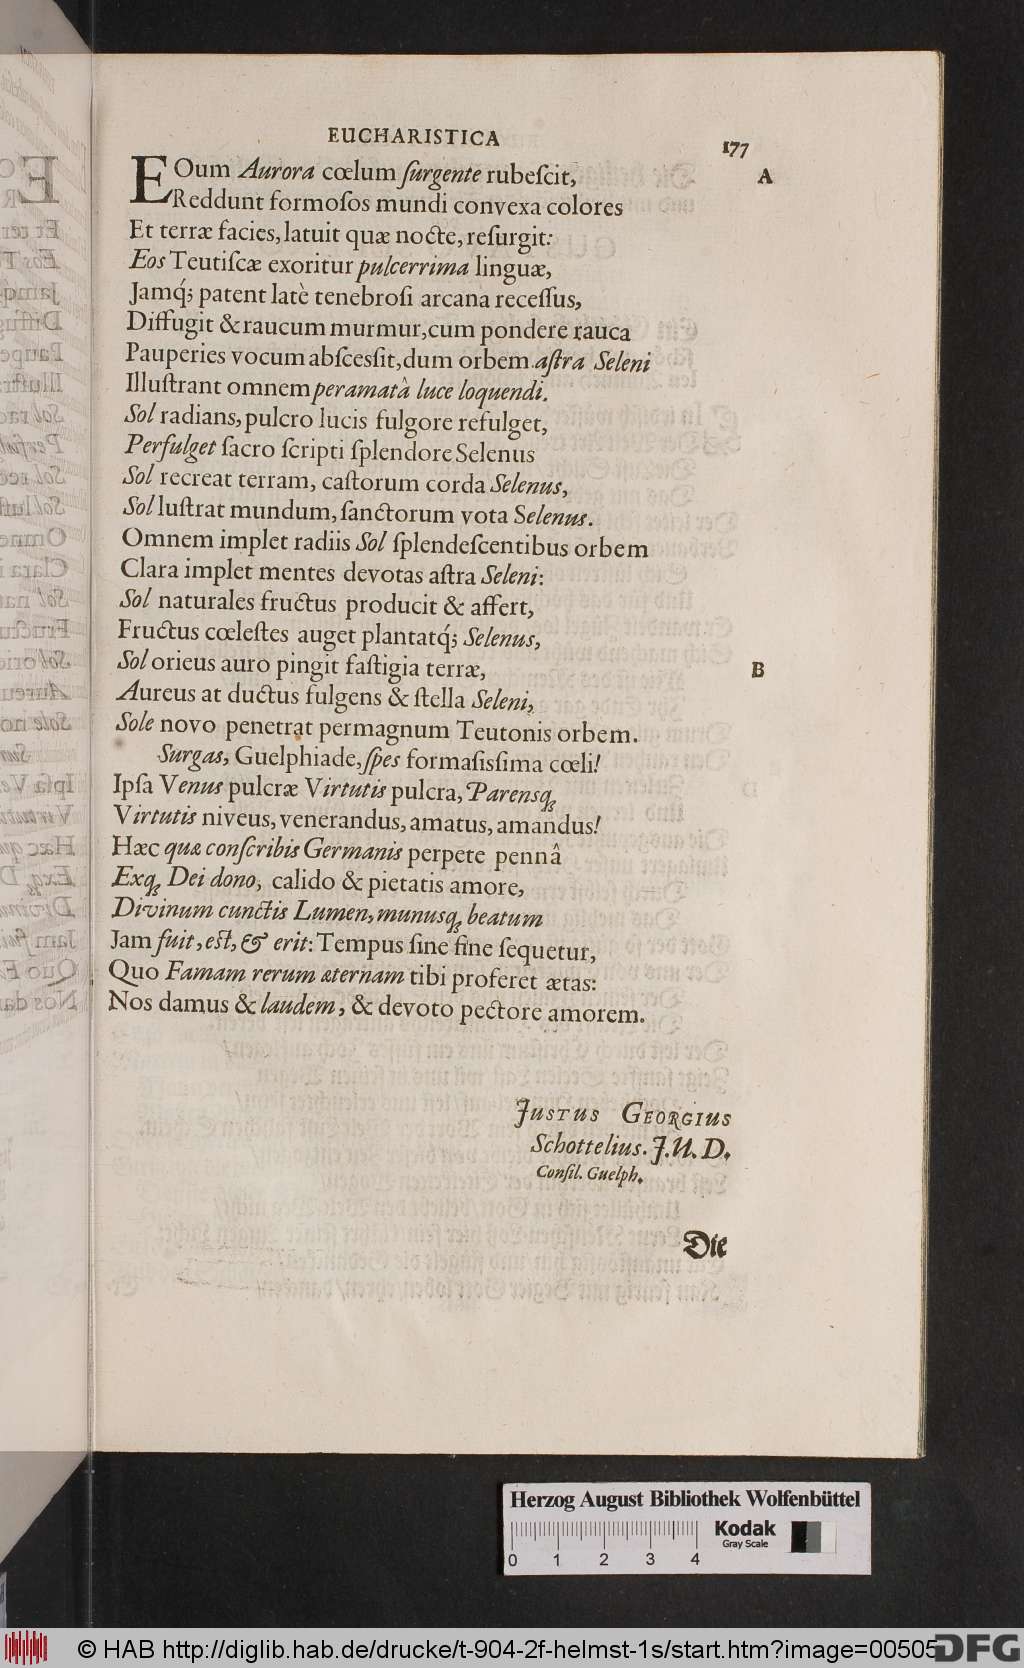 EUCHARISTICA 177
EOum Aurora cœlum ſurgente rubeſcit, A
Reddunt formoſos mundi convexa colores
Et terræ facies, latuit quæ nocte, reſurgit:
Eos Teutiſcæ exoritur pulcerrima linguæ,
Jamq́; patent latè tenebroſi arcana receſſus,
Diffugit & raucum murmur, cum pondere rauca
Pauperies vocum abſcesſit, dum orbem aſtra Seleni
Illuſtrant omnem peramatâ luce loquendi.
Sol radians, pulcro lucis fulgore refulget,
Perfulget ſacro ſcripti ſplendore Selenus
Sol recreat terram, caſtorum corda Selenus,
Sol luſtrat mundum, ſanctorum vota Selenus.
Omnem implet radiis Sol ſplendeſcentibus orbem
Clara implet mentes devotas aſtra Seleni:
Sol naturales fructus producit & affert,
Fructus cœleſtes auget plantatq́; Selenus,
Sol orieus auro pingit faſtigia terræ, B
Aureus at ductus fulgens & ſtella Seleni,
Sole novo penetrat permagnum Teutonis orbem.
Surgas, Guelphiade, ſpes formaſisſima cœli!
Ipſa Venus pulcræ Virtutis pulcra, Parensq;
Virtutis niveus, venerandus, amatus, amandus!
Hæc quæ conſcribis Germanis perpete pennâ
Exq; Dei dono, calido & pietatis amore,
Divinum cunctis Lumen, munusq; beatum
Jam fuit, eſt, & erit: Tempus ſine fine ſequetur,
Quo Famam rerum æternam tibi proferet ætas:
Nos damus & laudem, & devoto pectore amorem.
JUSTUS GEORGIUS
Schottelius. J.U.D.
Conſil. Guelph.
Die
Herzog August Bibliothek Wolfenbüttel
Kodak
Gray Scale
0 1 2 3 4
© HAB http://diglib.hab.de/drucke/t-904-2f-helmst-1s/start.htm?image=00505
DFG